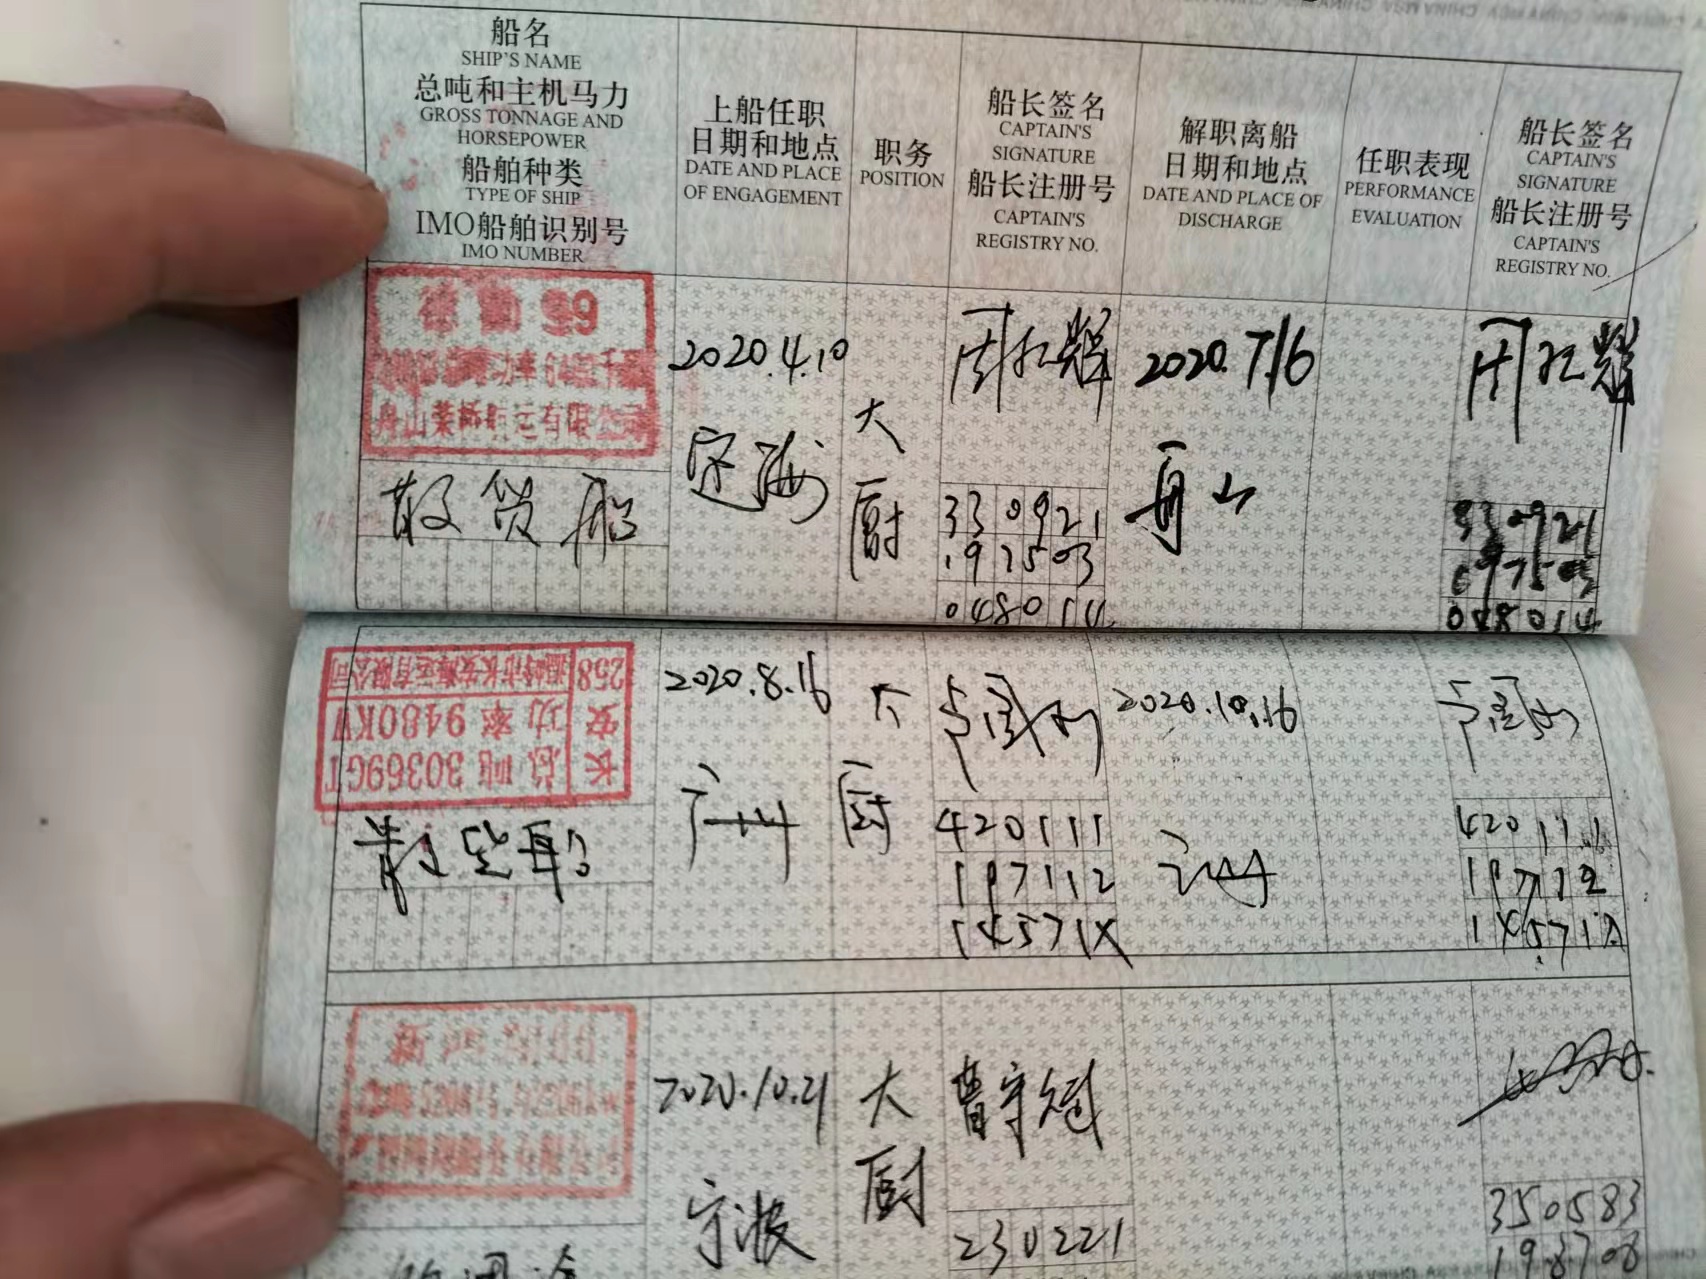 船名
SHIP'S NAME
总吨和主机马力
GROSS TONNAGE AND
HORSEPOWER
船舶种类
TYPE OF SHIP
IMO船舶识别号
IMO NUMBER
上船任职
日期和地点
DATE AND PLACE
OF ENGAGEMENT
职务
POSITION
船长签名
CAPTAIN'S
SIGNATURE
船长注册号
CAPTAIN'S
REGISTRY NO.
解职离船
日期和地点
DATE AND PLACE OF
DISCHARGE
任职表现
PERFORMANCE
EVALUATION
船长签名
CAPTAIN'S
SIGNATURE
船长注册号
CAPTAIN'S
REGISTRY NO.
59
散货船
2020.4.10
定海
大厨
330921
197503
048014
2020.7/6
舟山
330921
197503
048014
长安258
温岭市长安海运有限公司
功率9480KW
总吨30369GT
散货船
2020.8.16
广州
大厨
420111
197112
14571X
2020.10.16
420111
197112
14571X
2020.10.21
宁波
大厨
曹守冠
230221
350583
198708